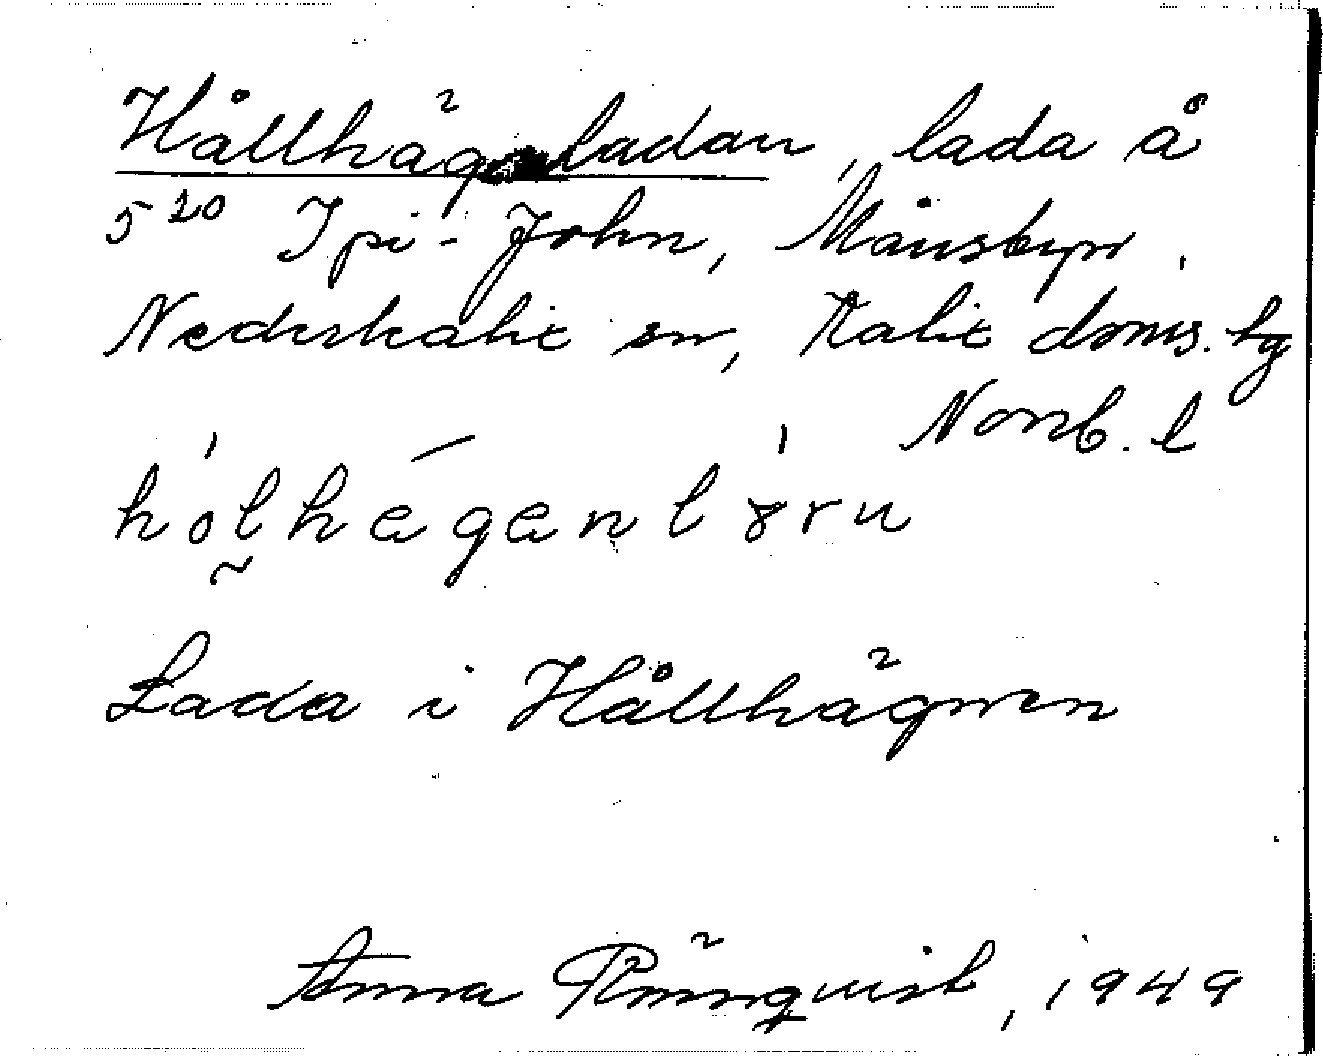 Hållhäg ladan, lada å
5²⁰ Ipi-John, Månsbyn,
Nederkalix sn, Kalix doms. tg
Norrb. l
Lada i Hållhägnen
Anna Rönnqvist, 1949